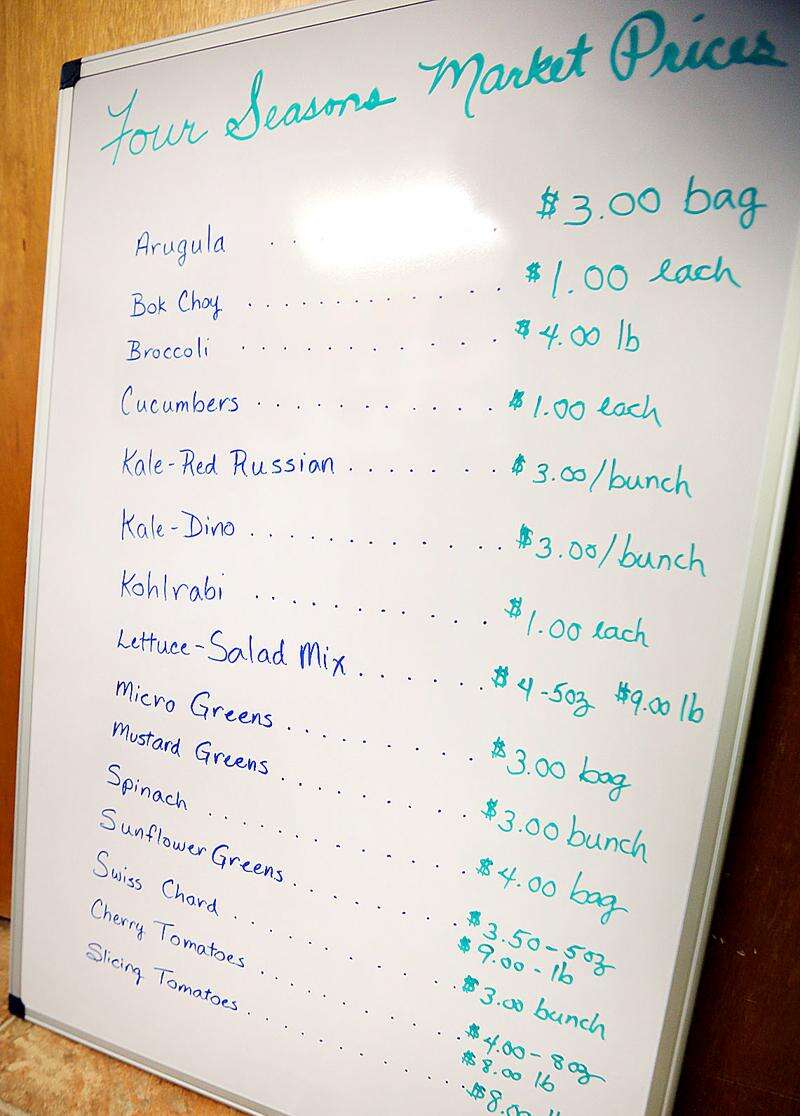 Four Seasons Market Prices
Arugula . . . $3.00 bag
Bok Choy . . . . . . . . . . . . $1.00 each
Broccoli . . . . . . . . . . . $4.00 lb
Cucumbers . . . . . . . . . . . $1.00 each
Kale-Red Russian . . . . . . . $3.00/bunch
Kale-Dino . . . . . . . . . . . $3.00/bunch
Kohlrabi . . . . . . . . . . . $1.00 each
Lettuce-Salad Mix . . . . . . . $4-5oz $9.00 lb
Micro Greens . . . . . . . . . $3.00 bag
Mustard Greens . . . . . . . . . $3.00 bunch
Spinach . . . . . . . . . . . $4.00 bag
Sunflower Greens . . . . . . . . $3.50-5oz
$9.00-lb
Swiss Chard . . . . . . . . . . $3.00 bunch
Cherry Tomatoes . . . . . . . . $4.00-8oz
$8.00 lb
Slicing Tomatoes . . . . . . . . $8.00